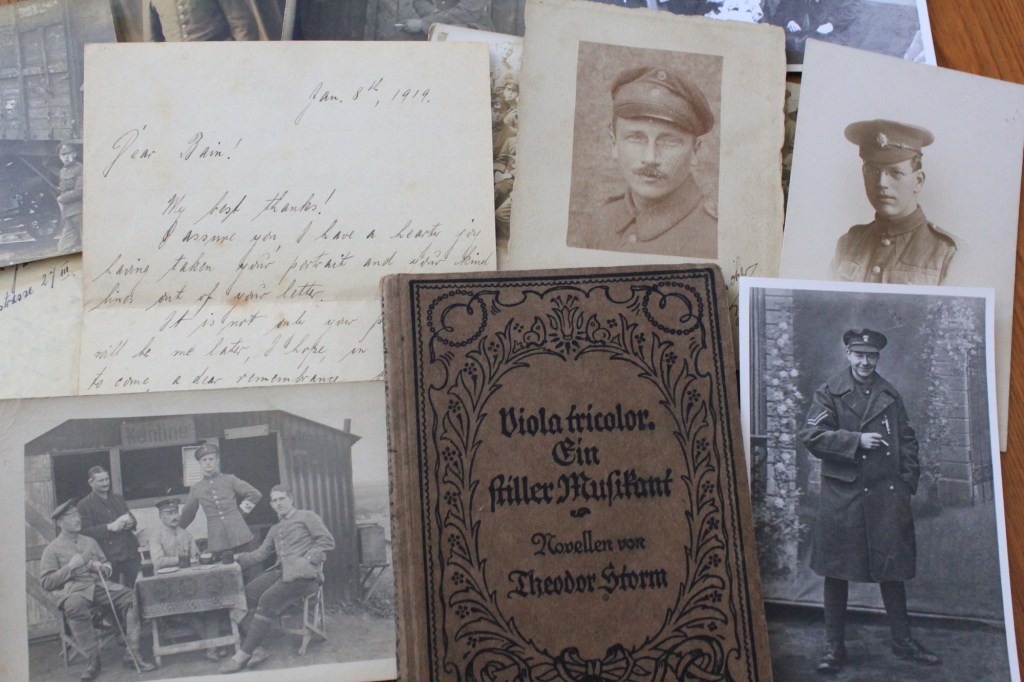 Jan. 8th, 1919.
Dear Bain!
My best thanks!
I assure you I have a hearty joy
having taken your portrait and your kind
lines out of your letter.
It is not only your p
will be me later, I hope, in
to come a dear remembrance
strasse 27 III
Kantine
Viola tricolor.
Ein
stiller Musikant
Novellen von
Theodor Storm